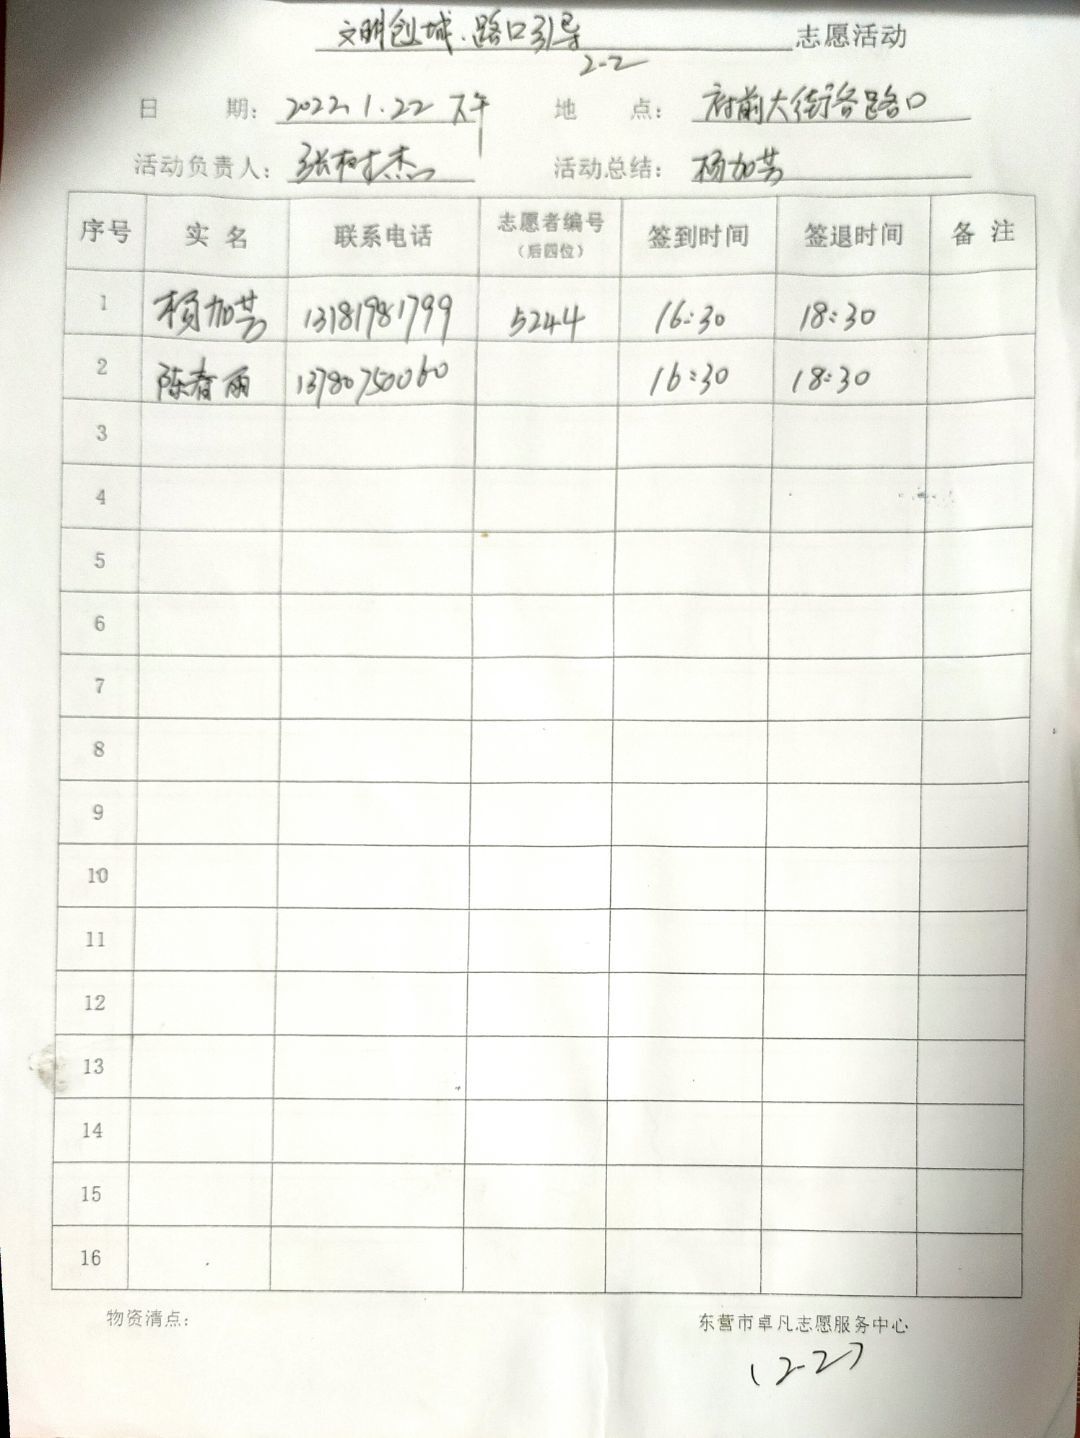 文明创城.路口引导 志愿活动
2-2
日 期: 2022.1.22 下午 地 点: 府前大街各路口
活动负责人: 张树杰 活动总结: 杨加芳
序号 实 名 联系电话 志愿者编号 (后四位) 签到时间 签退时间 备 注
1 杨加芳 13181981799 5244 16:30 18:30
2 陈春雨 13780750060 16:30 18:30
3
4
5
6
7
8
9
10
11
12
13
14
15
16
物资清点: 东营市卓凡志愿服务中心
(2-2)